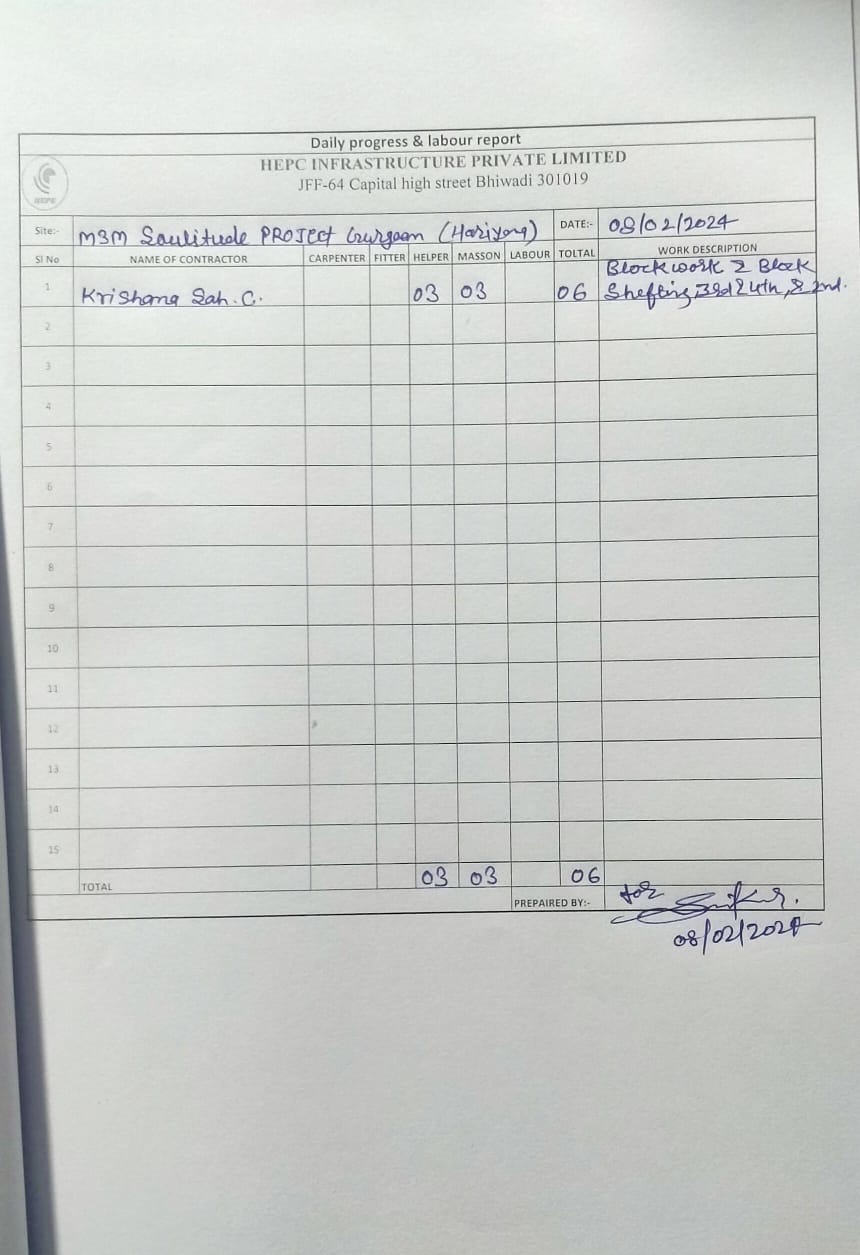 Daily progress & labour report
HEPC INFRASTRUCTURE PRIVATE LIMITED
JFF-64 Capital high street Bhiwadi 301019
HEPC
Site:- M3M Soulitude PROJect Gurgaon (Hariyana) DATE:- 08/02/2024
Sl No NAME OF CONTRACTOR CARPENTER FITTER HELPER MASSON LABOUR TOLTAL WORK DESCRIPTION
Block work & Block
1 Krishana Sah. C. 03 03 06 Shefting 3rd & 4th, & 2nd.
2
3
4
5
6
7
8
9
10
11
12
13
14
15
TOTAL 03 03 06
PREPAIRED BY:- for
08/02/2024